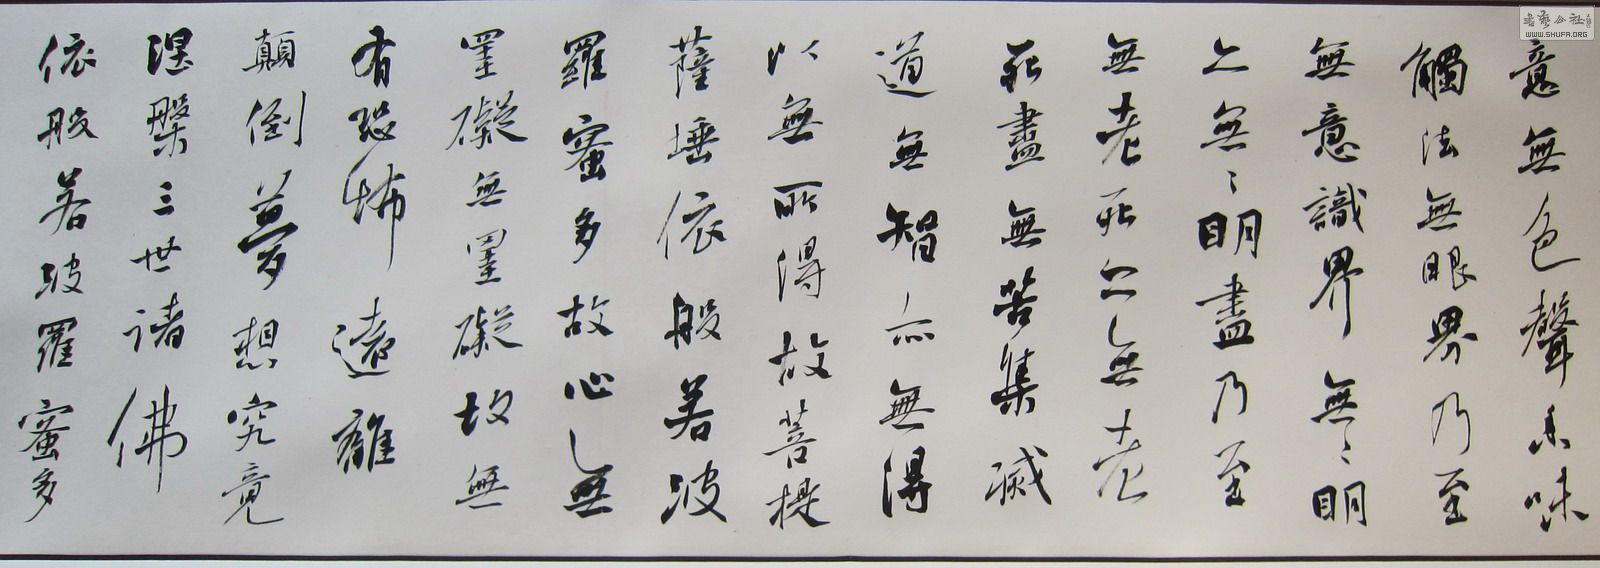 意無色聲香味
觸法無眼界乃至
無意識界無〻明
亦無〻明盡乃至
無老死亦無老
死盡無苦集滅
道無智亦無得
以無所得故菩提
薩埵依般若波
羅蜜多故心無
罣礙無罣礙故無
有恐怖遠離
顛倒夢想究竟
涅槃三世諸佛
依般若波羅蜜多
書藝公社
WWW.SHUFA.ORG